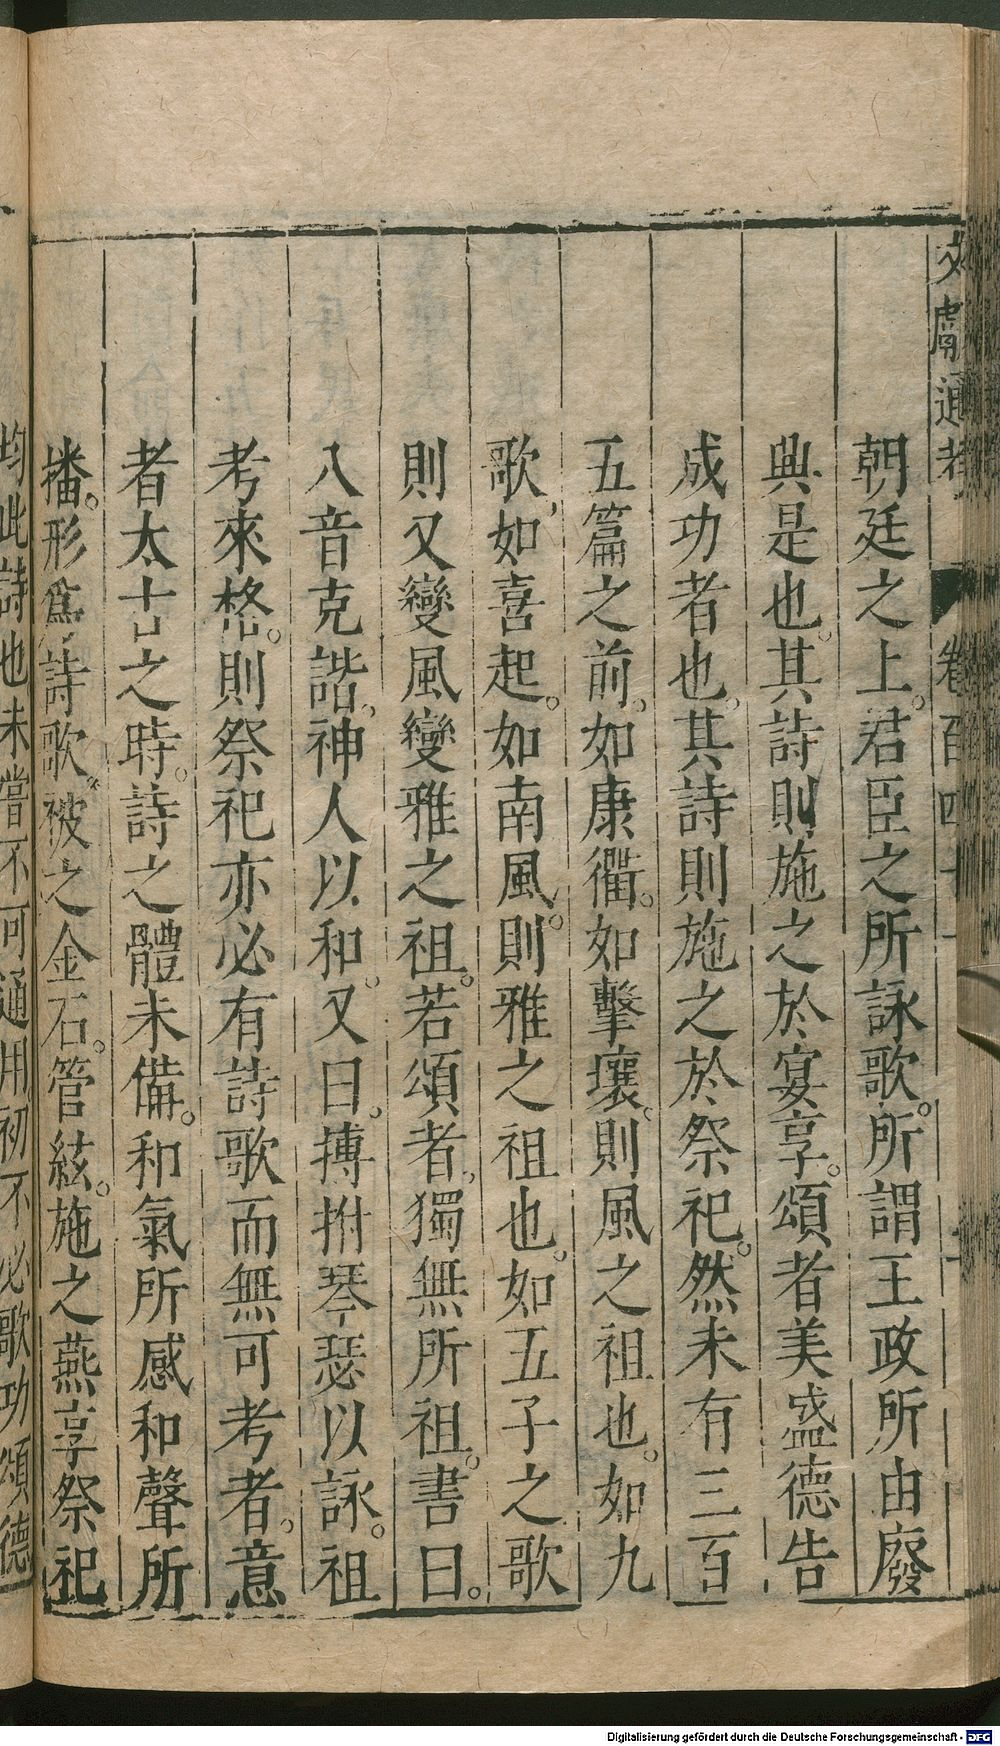 文獻通考 卷百四十一
朝廷之上。君臣之所詠歌。所謂王政所由廢
興是也。其詩則施之於宴享。頌者美盛德告
成功者也。其詩則施之於祭祀。然未有三百
五篇之前。如康衢。如擊壤。則風之祖也。如九
歌、如喜起。如南風。則雅之祖也。如五子之歌
則又變風變雅之祖。若頌者、獨無所祖。書曰。
八音克諧。神人以和。又曰。搏拊琴瑟以詠。祖
考來格。則祭祀亦必有詩歌而無可考者。意
者太古之時。詩之體未備。和氣所感和聲所
播。形為詩歌。被之金石。管絃。施之燕享祭祀
均此詩也未嘗不可通用初不必歌功頌德
Digitalisierung gefördert durch die Deutsche Forschungsgemeinschaft - DFG